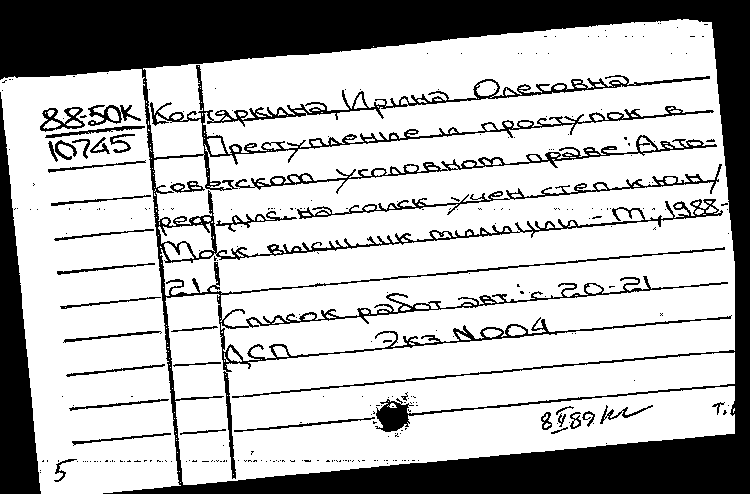 88-50К Костяркина, Ирина Олеговна.
10745 Преступление и проступок в
советском уголовном праве: Авто-
реф. дис. на соиск учен. степ. к.ю.н/
Моск. высш. шк. милиции. - М., 1988.-
21с.
Список работ авт.: с. 20-21
ДСП Экз N004
8 V 89
5